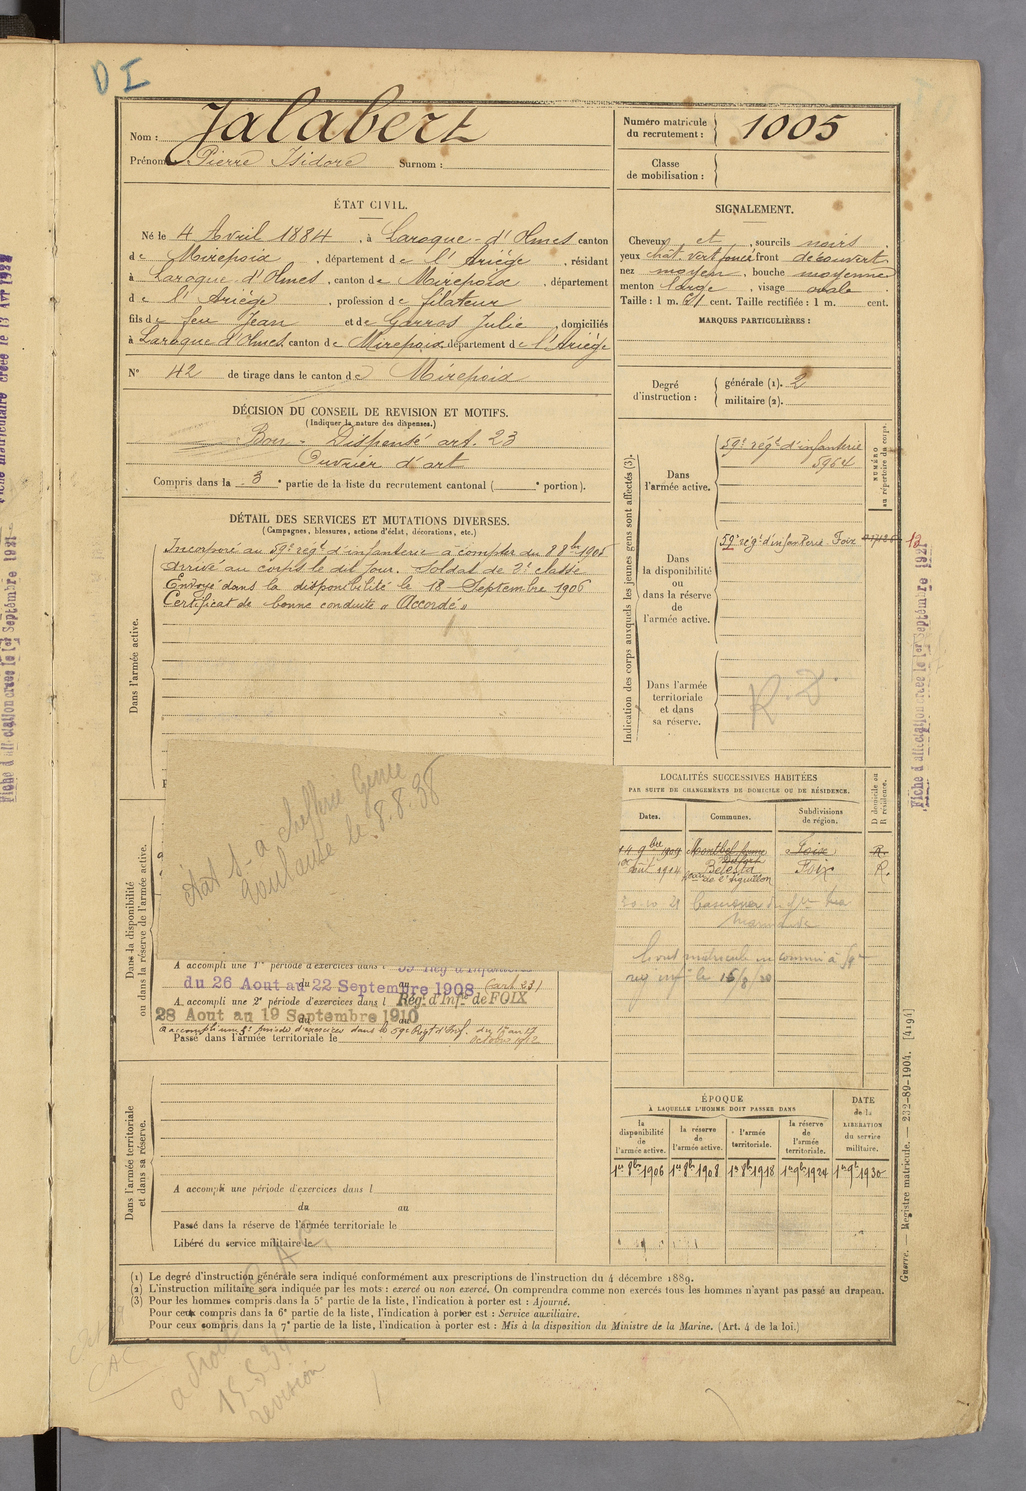 D I
Nom : Jalabert
Prénoms : Pierre Isidore Surnom :
Numéro matricule
du recrutement : 1005
Classe
de mobilisation :
ÉTAT CIVIL.
Né le 4 Avril 1884, à Laroque-d'Olmes canton
de Mirepoix, département de l'Ariège, résidant
à Laroque d'Olmes, canton de Mirepoix, département
de l'Ariège, profession de filateur
fils de feu Jean et de Garros Julie, domiciliés
à Laroque d'Olmes canton de Mirepoix département de l'Ariège
N° 42 de tirage dans le canton de Mirepoix
SIGNALEMENT.
Cheveux et, sourcils noirs.
yeux chat. vert foncé front découvert
nez moyen, bouche moyenne
menton large, visage ovale.
Taille : 1 m. 61 cent. Taille rectifiée : 1 m. cent.
MARQUES PARTICULIÈRES :
Degré
d'instruction :
générale (1). 2
militaire (2).
DÉCISION DU CONSEIL DE REVISION ET MOTIFS.
(Indiquer la nature des dispenses.)
Bon - Dispensé art. 23
Ouvrier d'art
Compris dans la 3e partie de la liste du recrutement cantonal ( e portion).
DÉTAIL DES SERVICES ET MUTATIONS DIVERSES.
(Campagnes, blessures, actions d'éclat, décorations, etc.)
Dans l'armée active.
Incorporé au 59e régt d'infanterie à compter du 8 8bre 1905
Arrivé au corps le dit jour. Soldat de 2e classe
Envoyé dans la disponibilité le 18 Septembre 1906
Certificat de bonne conduite " Accordé "
Indication des corps auxquels les jeunes gens sont affectés (3).
NUMÉRO
au répertoire du corps.
Dans
l'armée active.
59e régt d'infanterie
5964
Dans
la disponibilité
ou
dans la réserve
de
l'armée active.
59e régt d'infanterie Foix
12
Dans l'armée
territoriale
et dans
sa réserve.
R. D.
Etat S- a chefferie Génie
Toulouse le 8.8.38
Dans la disponibilité
ou dans la réserve de l'armée active.
A accompli une 1re période d'exercices dans l 59 Rég d'Infanterie
du 26 Aout au 22 Septembre 1908 (art 23)
A accompli une 2e période d'exercices dans l Rég. d'Infie de FOIX
28 Aout au 19 Septembre 1910
a accompli une 3e période d'exercices dans le 59e Régt d'Inf. du 1er au 17
octobre 1912
Passé dans l'armée territoriale le
LOCALITÉS SUCCESSIVES HABITÉES
PAR SUITE DE CHANGEMENTS DE DOMICILE OU DE RÉSIDENCE.
Dates. Communes. Subdivisions
de région.
D domicile ou
R résidence.
14 9bre 1909 Montbel Foix R.
Août 1914 Bélesta Foix R.
de l'Aiguillon
20-10-29
matricule
le 16/8/20
Dans l'armée territoriale
et dans sa réserve.
A accompli une période d'exercices dans l
du au
Passé dans la réserve de l'armée territoriale le
Libéré du service militaire le
ÉPOQUE
À LAQUELLE L'HOMME DOIT PASSER DANS
la
disponibilité
de
l'armée active.
la réserve
de
l'armée active.
l'armée
territoriale.
la réserve
de
l'armée
territoriale.
DATE
de la
LIBÉRATION
du service
militaire.
1er 8bre 1906 1er 8bre 1908 1er 8bre 1918 1er 9bre 1924 1er 9bre 1930
(1) Le degré d'instruction générale sera indiqué conformément aux prescriptions de l'instruction du 4 décembre 1889.
(2) L'instruction militaire sera indiquée par les mots : exercé ou non exercé. On comprendra comme non exercés tous les hommes n'ayant pas passé au drapeau.
(3) Pour les hommes compris dans la 5e partie de la liste, l'indication à porter est : Ajourné.
Pour ceux compris dans la 6e partie de la liste, l'indication à porter est : Service auxiliaire.
Pour ceux compris dans la 7e partie de la liste, l'indication à porter est : Mis à la disposition du Ministre de la Marine. (Art. 4 de la loi.)
Guerre. — Registre matricule. — 232-89-1904. [4194]
Fiche d affectation créée le 1er Septembre 1921
Fiche d affectation créée le 1er Septembre 1921
a droit
15-5-39
revision